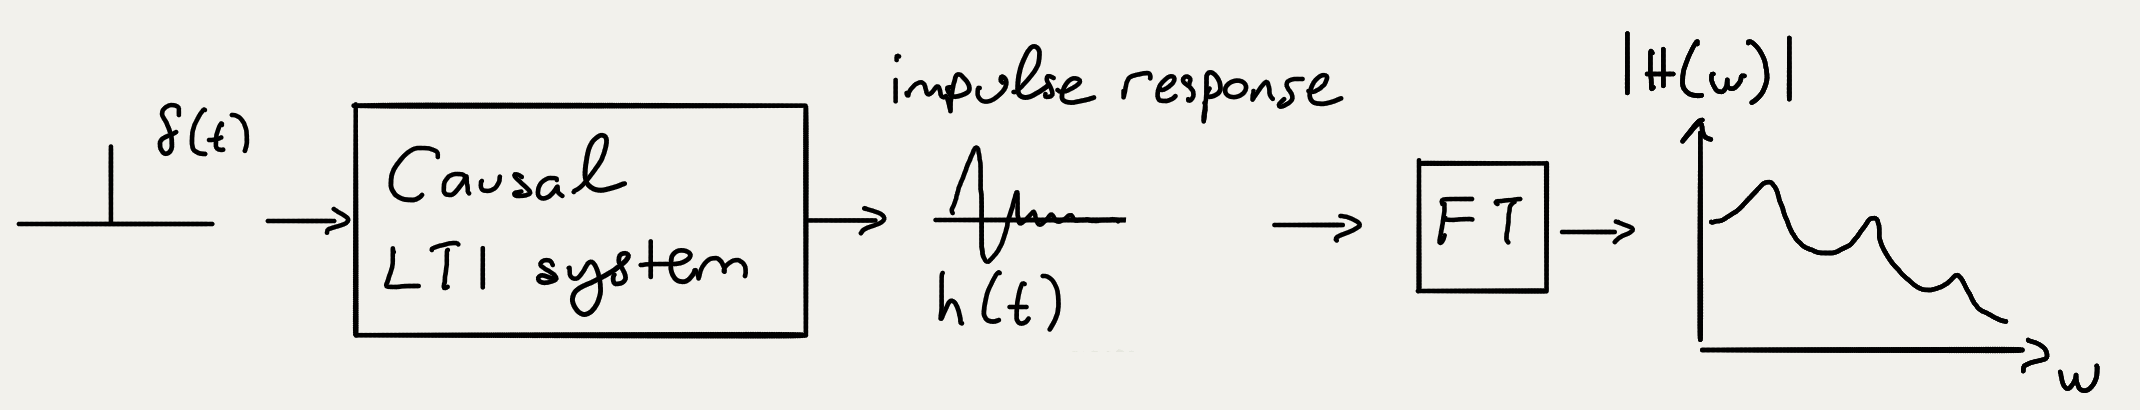 δ(t)
Causal
LTI system
impulse response
h(t)
FT
|H(w)|
w